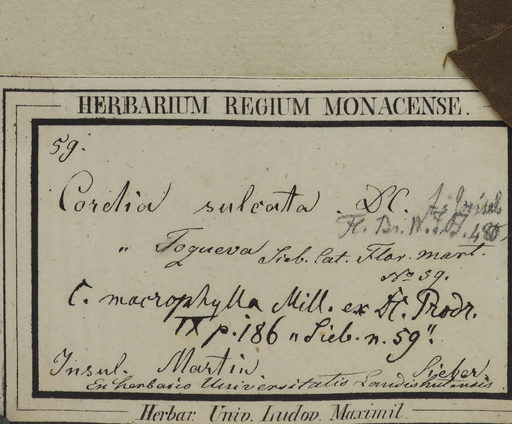 HERBARIUM REGIUM MONACENSE.
59.
Cordia sulcata. DC.
Fl. Br. W. I. I. 480
" Toqueva Sieb. Cat. Flor. mart.
No 59.
C. macrophylla Mill. ex DC. Prodr.
IX p. 186 „Sieb. n. 59".
Insul. Martin. Sieber.
Ex herbario Universitatis Landishutensis
Herbar. Univ. Ludov. Maximil.